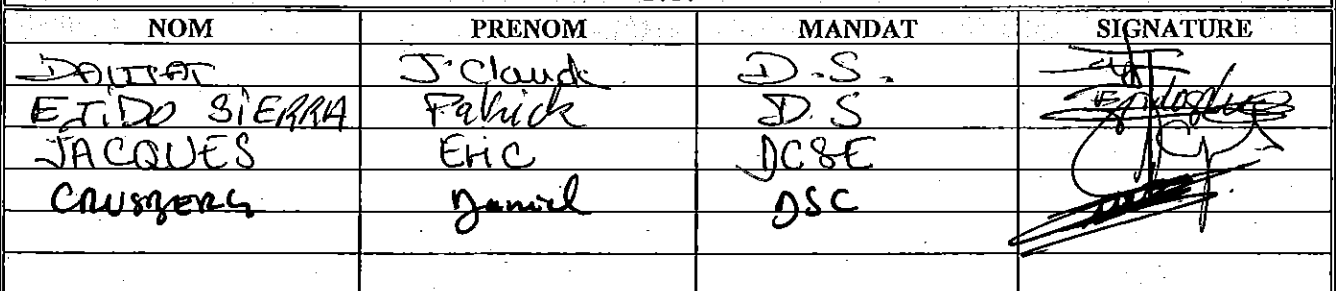 NOM PRENOM MANDAT SIGNATURE
J.Claude D.S.
EJIDO SIERRA Patrick D.S
JACQUES Eric DCSE
CRUSBERG Daniel DSC